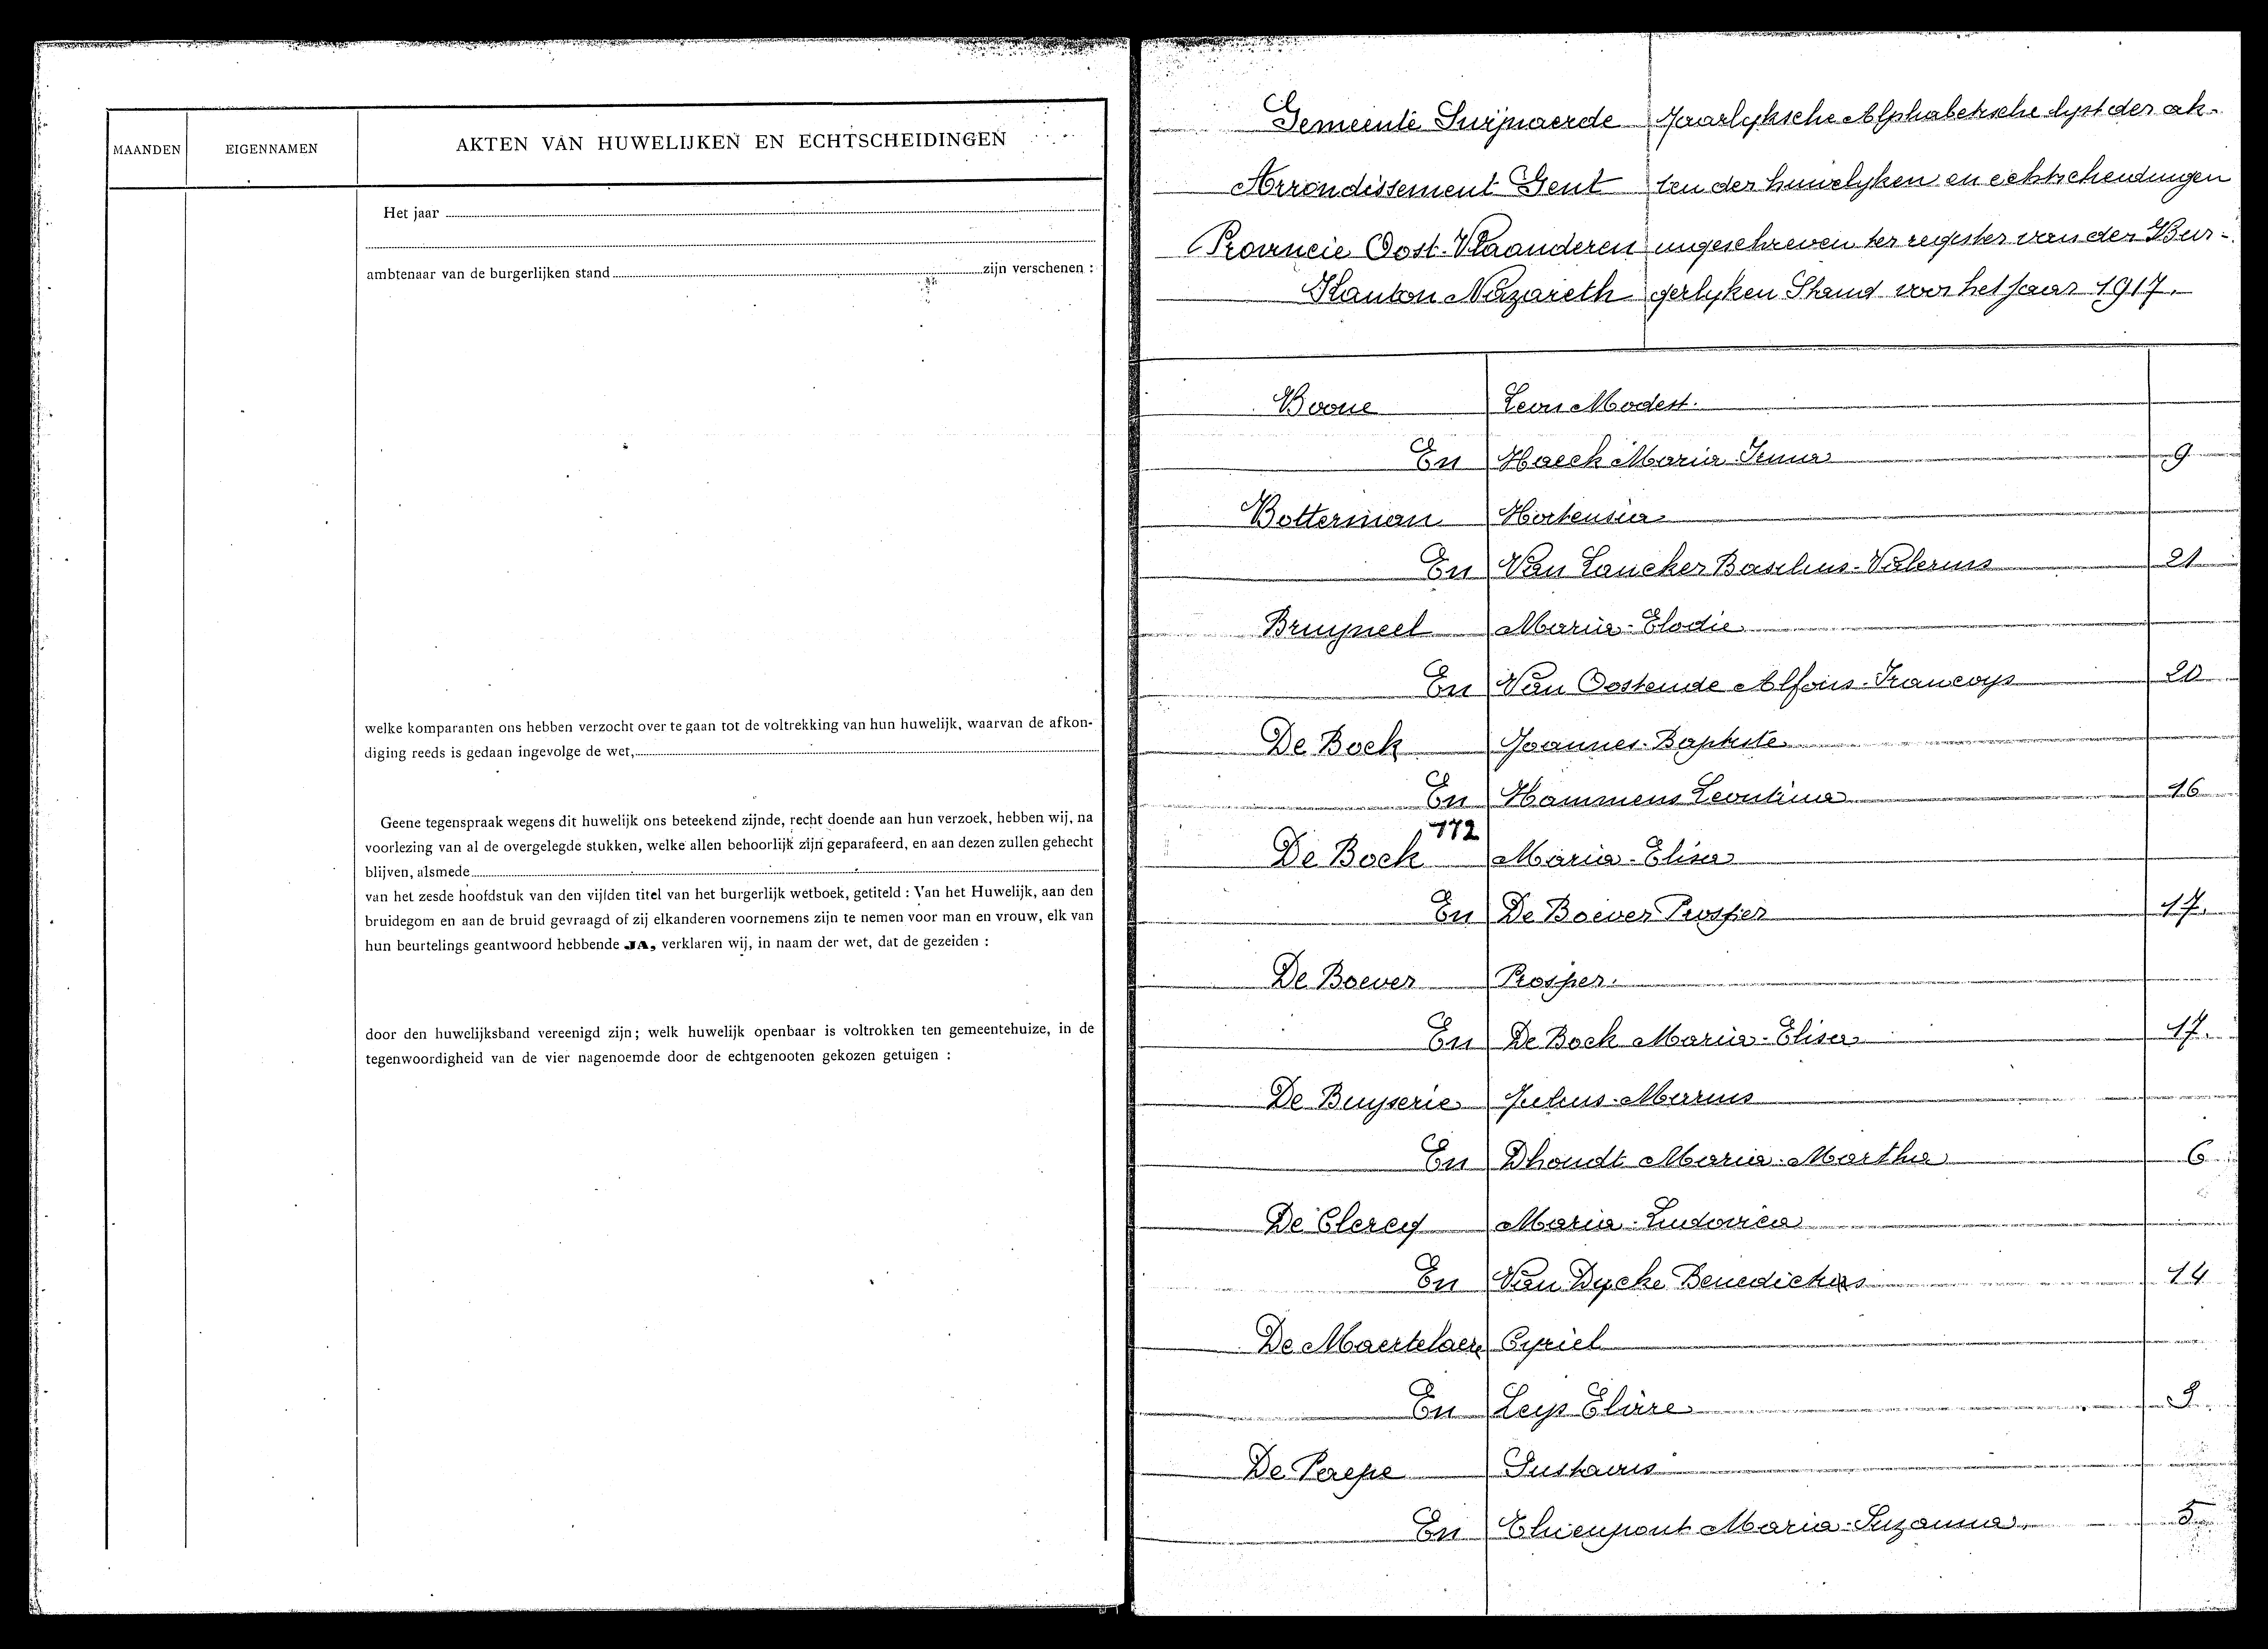 MAANDEN
EIGENNAMEN
AKTEN VAN HUWELIJKEN EN ECHTSCHEIDINGEN
Het jaar
ambtenaar van de burgerlijken stand zijn verschenen :
welke komparanten ons hebben verzocht over te gaan tot de voltrekking van hun huwelijk, waarvan de afkon-
diging reeds is gedaan ingevolge de wet,
Geene tegenspraak wegens dit huwelijk ons beteekend zijnde, recht doende aan hun verzoek, hebben wij, na
voorlezing van al de overgelegde stukken, welke allen behoorlijk zijn geparafeerd, en aan dezen zullen gehecht
blijven, alsmede
van het zesde hoofdstuk van den vijfden titel van het burgerlijk wetboek, getiteld : Van het Huwelijk, aan den
bruidegom en aan de bruid gevraagd of zij elkanderen voornemens zijn te nemen voor man en vrouw, elk van
hun beurtelings geantwoord hebbende JA, verklaren wij, in naam der wet, dat de gezeiden :
door den huwelijksband vereenigd zijn; welk huwelijk openbaar is voltrokken ten gemeentehuize, in de
tegenwoordigheid van de vier nagenoemde door de echtgenooten gekozen getuigen :
Gemeente Swijnaerde
Arrondissement Gent
Provincie Oost-Vlaanderen
Kanton Nazareth
Jaarlyksche Alphabetische lyst der ak-
ten der huwelyken en echtscheidingen
ingeschreven ter register van der Bur-
gerlyken Stand voor het jaar 1917.
Boone Leon Modest.
En Haeck Maria Irma 9
Botterman Hortensia
En Van Lancker Basilius-Valerius 21
Bruyneel Maria-Elodie
En Van Oostende Alfons-Francoys 20
De Bock Joannes-Baptiste
En Hammens Leontina 16
172
De Bock Maria-Elisa
En De Boever Prosper 17.
De Boever Prosper.
En De Bock Maria-Elisa 17.
De Buyserie Julius-Marius
En Dhondt Maria-Martha 6
De Clercq Maria-Ludovica
En Van Dycke Benedictus 14
De Maertelaere Cyriel
En Leys Elvire
De Perepe Gustavus
En Thienpont Maria-Suzanna. 5